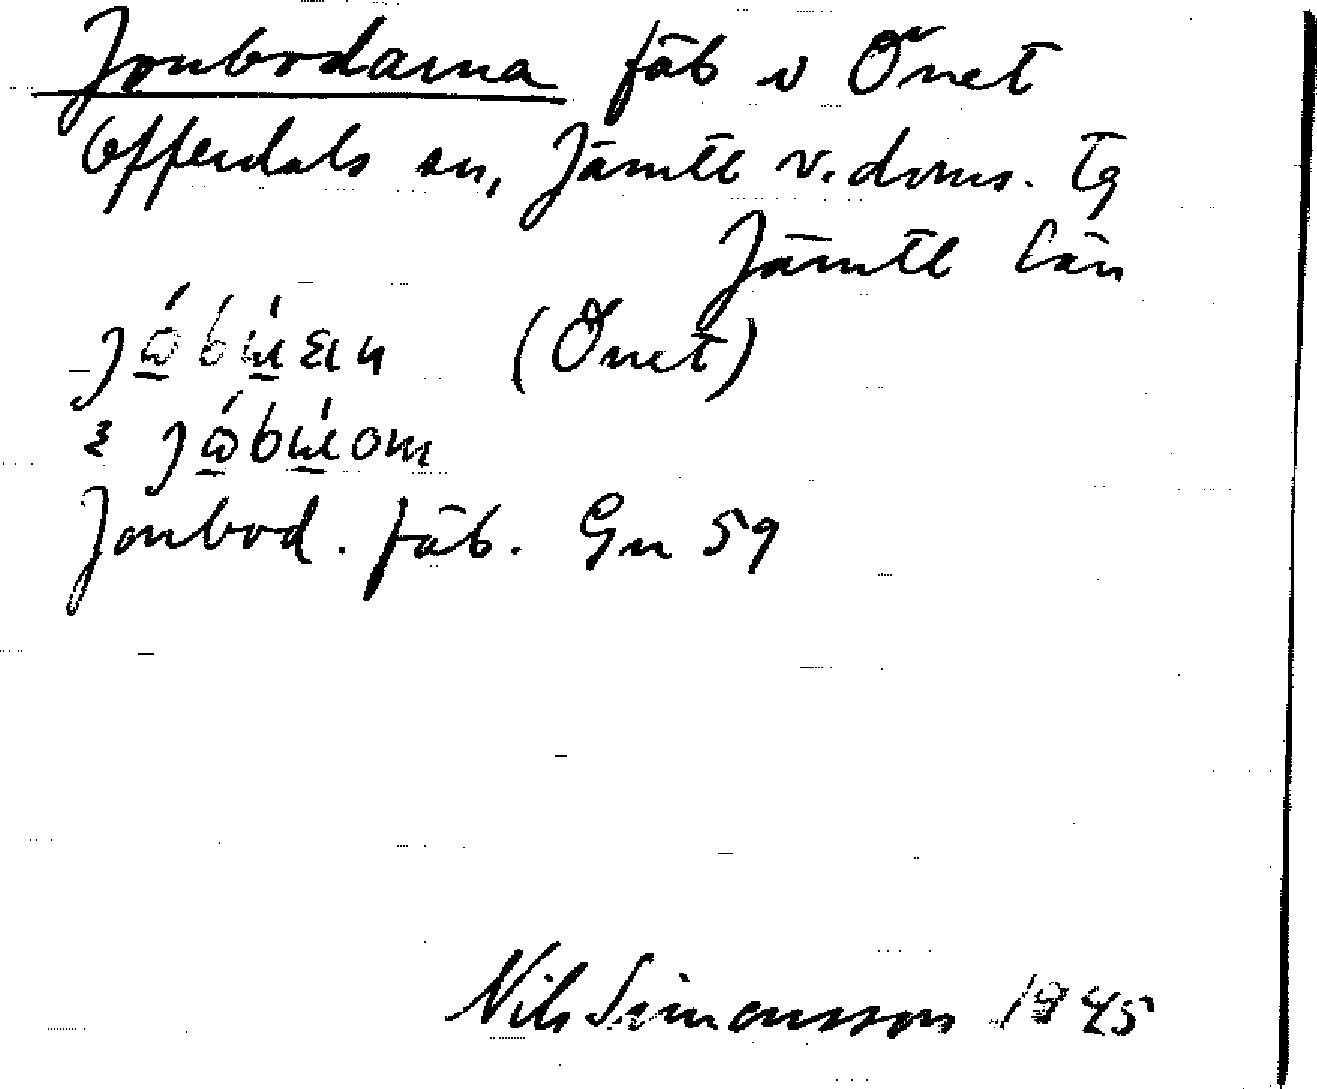 Jonbodarna fäb v Önet
Offerdals sn, Jämtl v. doms. tg
Jämtl län
(Önet)
Jonbod. fäb. Gn 59
Nils Simonsson 1945